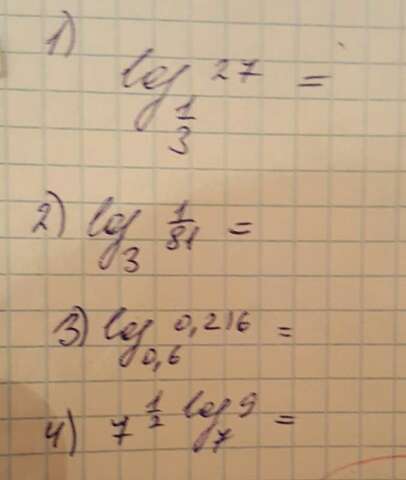 1) log_{\frac{1}{3}} 27 =
2) log_{3} \frac{1}{81} =
3) log_{0,6} 0,216 =
4) 7^{\frac{1}{2} log_{7} 9} =